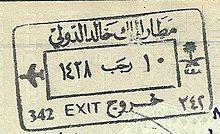 مطار الملك خالد الدولي
١٠ رجب ١٤٢٨
342 EXIT خروج ٣٤٢